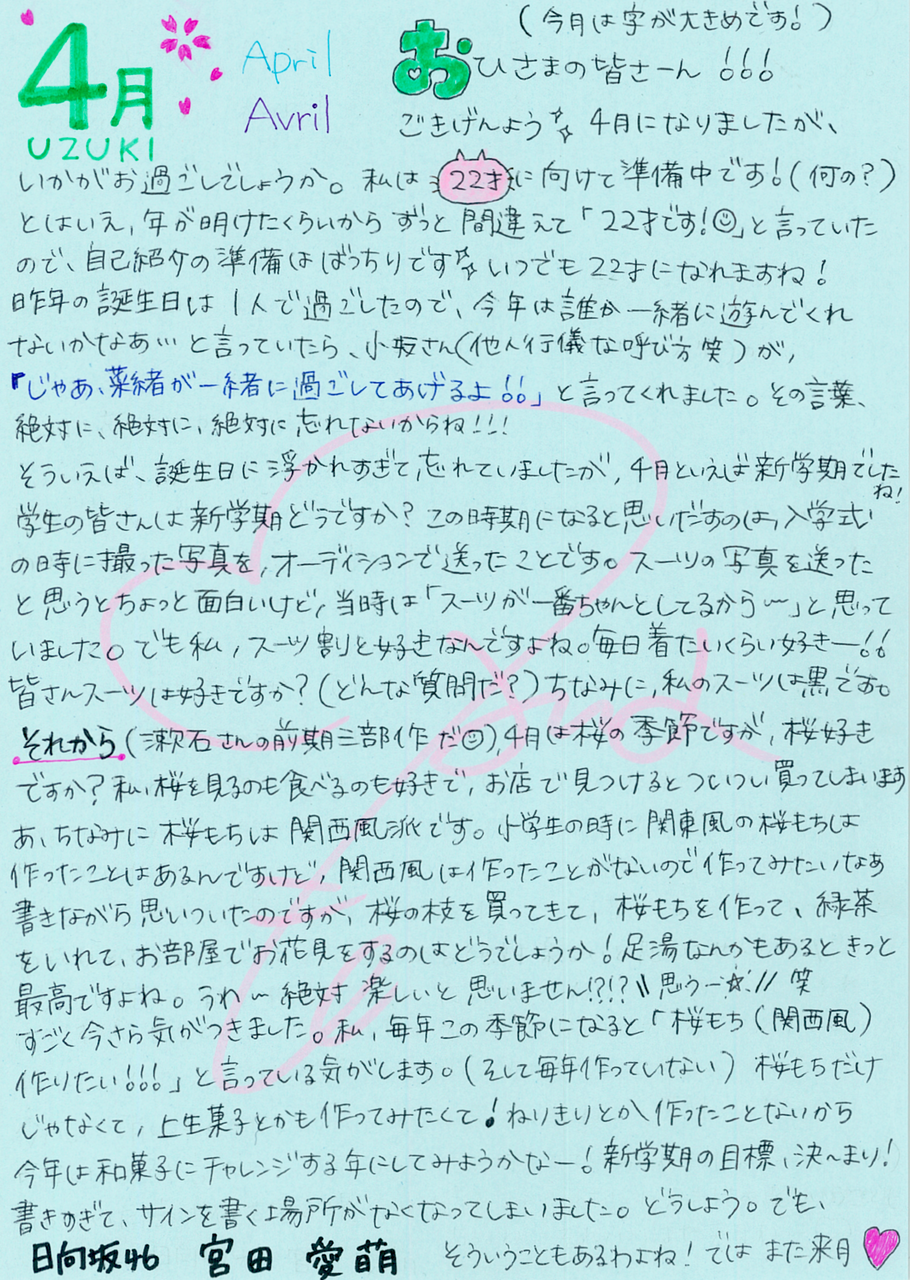 4月
UZUKI
April
Avril
(今月は字が大きめです!)
おひさまの皆さーん!!!
ごきげんよう 4月になりましたが、
いかがお過ごしでしょうか。私は22才に向けて準備中です!(何の?)
とはいえ、年が明けたくらいからずっと間違えて「22才です!☺」と言っていた
ので、自己紹介の準備はばっちりです いつでも22才になれますね!
昨年の誕生日は1人で過ごしたので、今年は誰か一緒に遊んでくれ
ないかなあ…と言っていたら、小坂さん(他人行儀な呼び方笑)が、
「じゃあ、菜緒が一緒に過ごしてあげるよ!!」と言ってくれました。その言葉、
絶対に、絶対に、絶対に忘れないからね!!!
そういえば、誕生日に浮かれすぎて忘れていましたが、4月といえば新学期でした
ね!
学生の皆さんは新学期どうですか?この時期になると思いだすのは、入学式
の時に撮った写真を、オーディションで送ったことです。スーツの写真を送った
と思うとちょっと面白いけど、当時は「スーツが一番ちゃんとしてるから〜」と思って
いました。でも私、スーツ割と好きなんですよね。毎日着たいくらい好きー!!
皆さんスーツは好きですか?(どんな質問だ?)ちなみに、私のスーツは黒です。
それから(漱石さんの前期三部作だ☺)、4月は桜の季節ですが、桜好き
ですか?私、桜を見るのも食べるのも好きで、お店で見つけるとついつい買ってしまいます
あ、ちなみに桜もちは関西風派です。小学生の時に関東風の桜もちは
作ったことはあるんですけど、関西風は作ったことがないので作ってみたいなぁ
書きながら思いついたのですが、桜の枝を買ってきて、桜もちを作って、緑茶
をいれて、お部屋でお花見をするのはどうでしょうか!足湯なんかもあるときっと
最高ですよね。うわ〜絶対楽しいと思いません!?!?\\思うー☆!//笑
すごく今さら気がつきました。私、毎年この季節になると「桜もち(関西風)
作りたい!!!」と言っている気がします。(そして毎年作っていない)桜もちだけ
じゃなくて、上生菓子とかも作ってみたくて!ねりきりとか作ったことないから
今年は和菓子にチャレンジする年にしてみようかなー!新学期の目標、決〜まり!
書きすぎて、サインを書く場所がなくなってしまいました。どうしよう。でも、
そういうこともあるわよね!ではまた来月
日向坂46 宮田愛萌